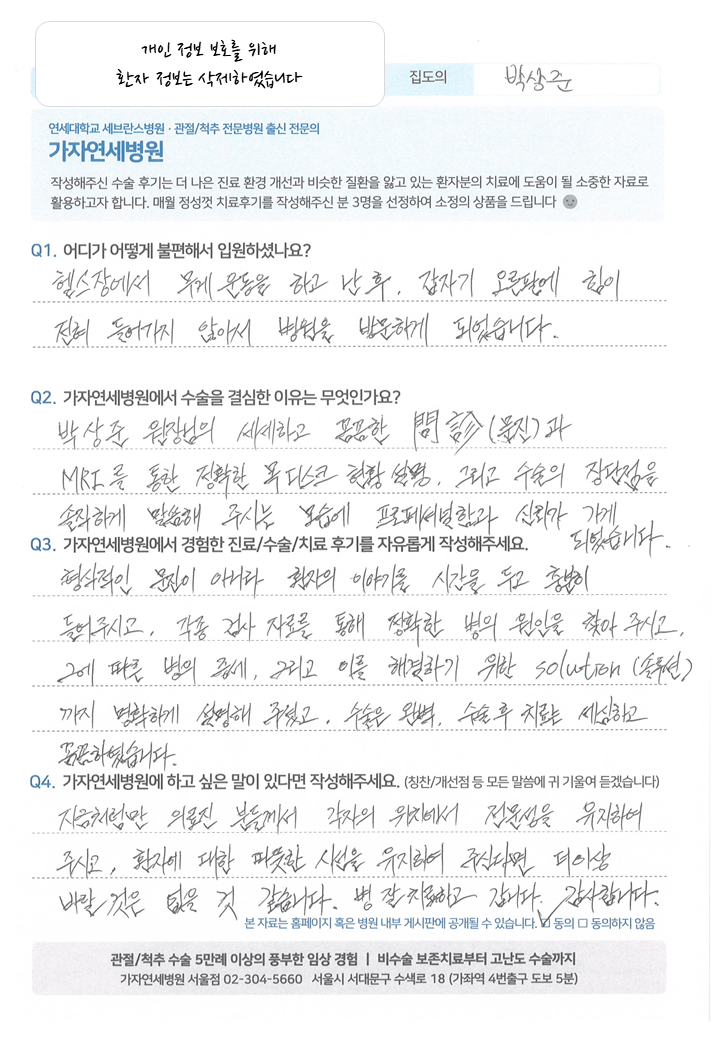 개인 정보 보호를 위해
환자 정보는 삭제하였습니다
집도의 박상준
연세대학교 세브란스병원 · 관절/척추 전문병원 출신 전문의
가자연세병원
작성해주신 수술 후기는 더 나은 진료 환경 개선과 비슷한 질환을 앓고 있는 환자분의 치료에 도움이 될 소중한 자료로
활용하고자 합니다. 매월 정성껏 치료후기를 작성해주신 분 3명을 선정하여 소정의 상품을 드립니다
Q1. 어디가 어떻게 불편해서 입원하셨나요?
헬스장에서 무게 운동을 하고 난 후, 갑자기 오른팔에 힘이
전혀 들어가지 않아서 병원을 방문하게 되었습니다.
Q2. 가자연세병원에서 수술을 결심한 이유는 무엇인가요?
박상준 원장님의 세세하고 꼼꼼한 問診(문진)과
MRI를 통한 정확한 목디스크 현황 설명, 그리고 수술의 장단점을
솔직하게 말씀해 주시는 모습에 프로페셔널함과 신뢰가 가게
되었습니다.
Q3. 가자연세병원에서 경험한 진료/수술/치료 후기를 자유롭게 작성해주세요.
형식적인 문진이 아니라 환자의 이야기를 시간을 두고 충분히
들어주시고, 각종 검사 자료를 통해 정확한 병의 원인을 찾아 주시고,
그에 따른 병의 증세, 그리고 이를 해결하기 위한 solution (솔루션)
까지 명확하게 설명해 주셨고, 수술은 완벽, 수술 후 치료는 세심하고
꼼꼼하였습니다.
Q4. 가자연세병원에 하고 싶은 말이 있다면 작성해주세요. (칭찬/개선점 등 모든 말씀에 귀 기울여 듣겠습니다)
지금처럼만 의료진 분들께서 각자의 위치에서 전문성을 유지하여
주시고, 환자에 대한 따뜻한 시선을 유지하여 주신다면 더이상
바랄 것은 없을 것 같습니다. 병 잘 치료하고 갑니다. 감사합니다.
본 자료는 홈페이지 혹은 병원 내부 게시판에 공개될 수 있습니다. ☑ 동의 □ 동의하지 않음
관절/척추 수술 5만례 이상의 풍부한 임상 경험 | 비수술 보존치료부터 고난도 수술까지
가자연세병원 서울점 02-304-5660 서울시 서대문구 수색로 18 (가좌역 4번출구 도보 5분)